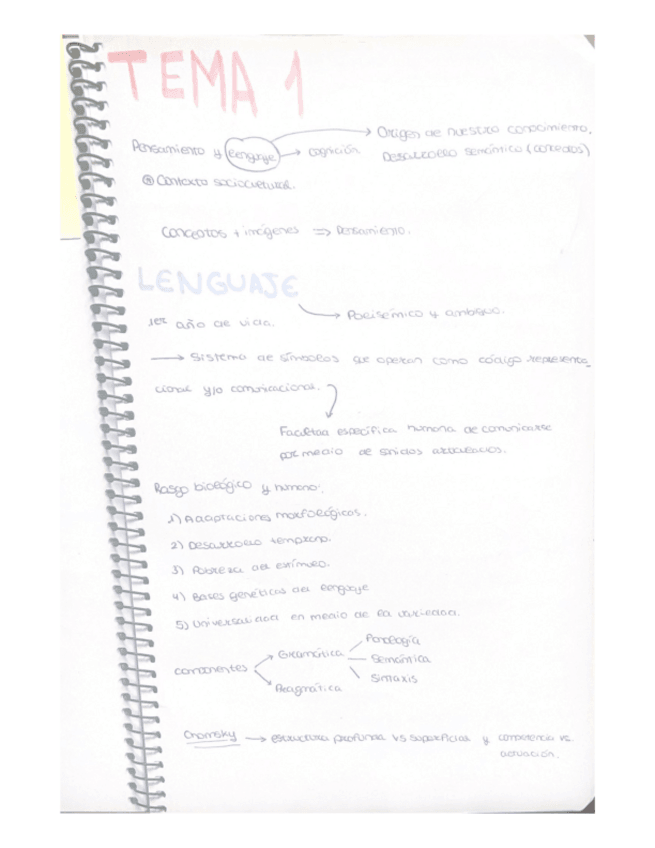 TEMA 1
Pensamiento y lenguaje → cognición → Origen de nuestro conocimiento.
Desarrollo semántico (conceptos)
Contexto sociocultural.
Conceptos + imágenes ⇒ Pensamiento.
LENGUAJE
→ Polisémico y ambiguo.
1er año de vida.
→ Sistema de símbolos que operan como código representa_
cional y/o comunicacional.
Facultad específica humana de comunicarse
por medio de sonidos articulados.
Rasgo biológico y humano:
1) Adaptaciones morfológicas.
2) Desarrollo temprano.
3) Pobreza del estímulo.
4) Bases genéticas del lenguaje
5) Universalidad en medio de la variedad.
Fonología
Gramática
Semántica
componentes
Sintaxis
Pragmática
Chomsky → estructura profunda vs superficial y competencia vs
actuación.